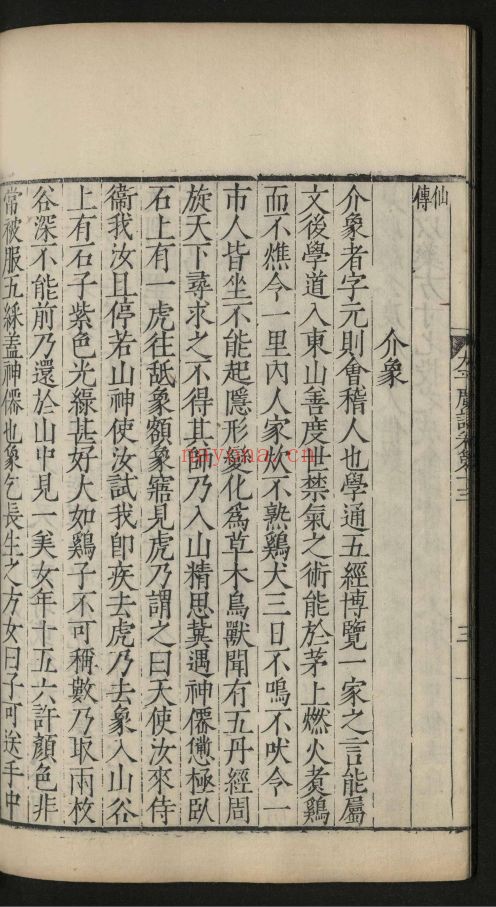 仙傳
介象
介象者字元則會稽人也學通五經博覽一家之言能屬
文後學道入東山善度世禁氣之術能於茅上燃火煑鷄
而不燋令一里內人家炊不熟鷄犬三日不鳴不吠令一
市人皆坐不能起隱形變化爲草木鳥獸聞有五丹經周
旋天下尋求之不得其師乃入山精思冀遇神僊憊極臥
石上有一虎往舐象額象寤見虎乃謂之曰天使汝來侍
衞我汝且停若山神使汝試我卽疾去虎乃去象入山谷
上有石子紫色光綠甚好大如鷄子不可稱數乃取兩枚
谷深不能前乃還於山中見一美女年十五六許顏色非
常被服五綵盖神僊也象乞長生之方女曰子可送手中